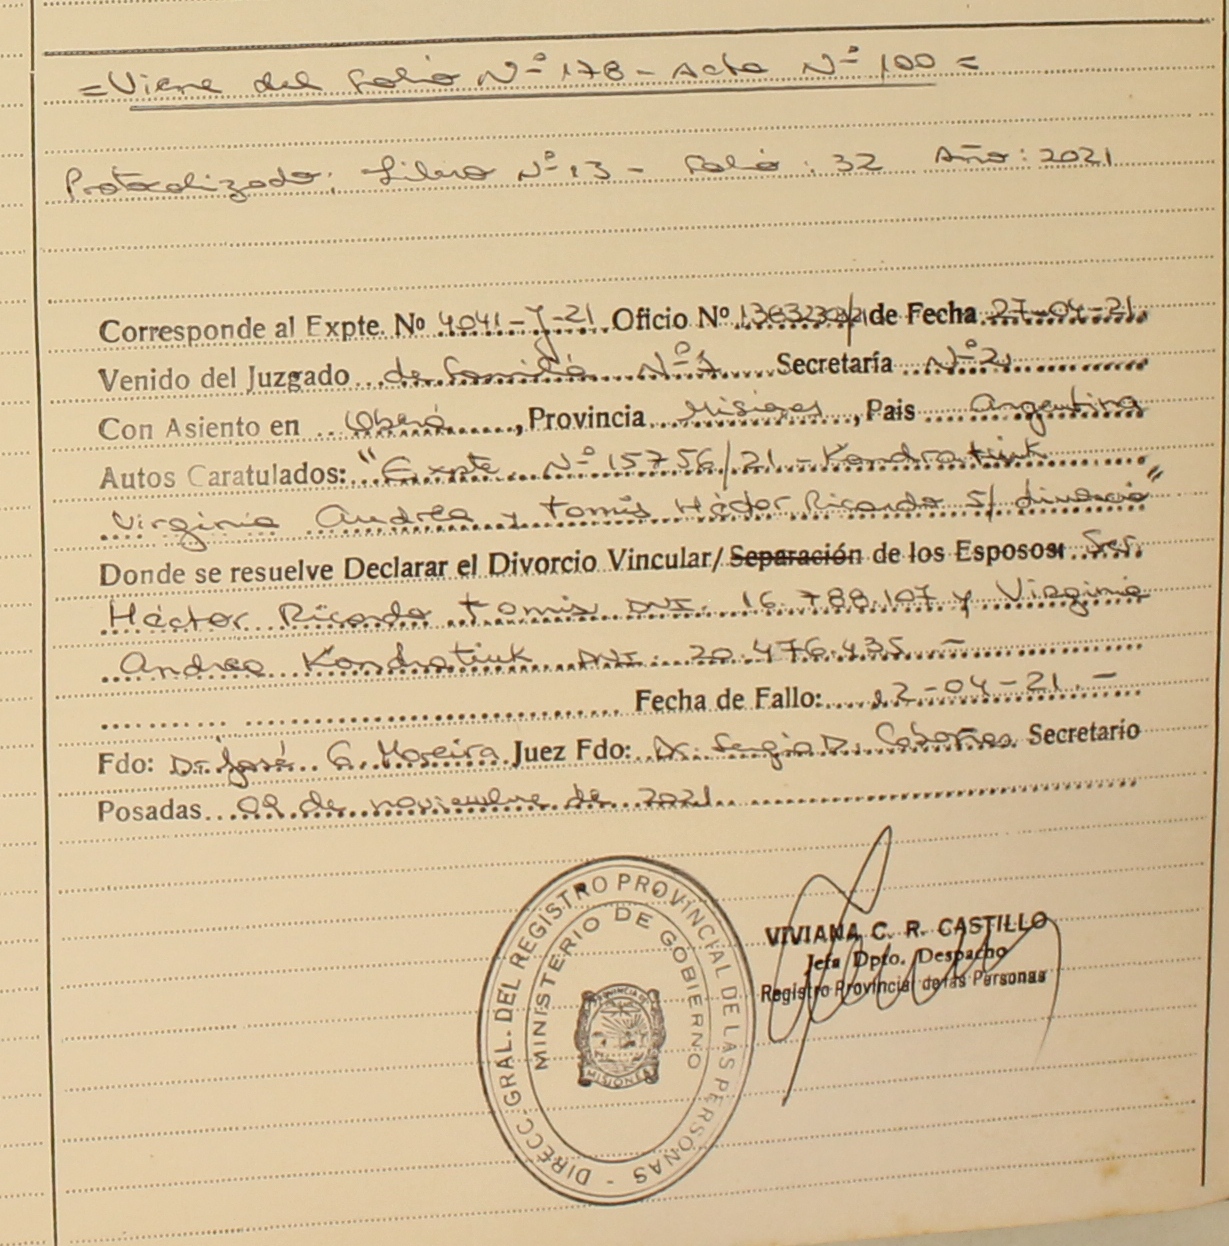 =Viene del Folio Nº 178 - Acta Nº 100 =
Protocolizado: Libro Nº 13 - Folio: 32 Año: 2021
Corresponde al Expte. Nº 4041-Y-21 Oficio Nº de Fecha 27-04-21
Venido del Juzgado de familia Nº 1 Secretaría Nº 2
Con Asiento en Oberá, Provincia Misiones, Pais Argentina
Autos Caratulados: "Expte. Nº 15756/21 - Kondratiuk
Virginia Andrea y Tomis Héctor Ricardo S/ divorcio"
Donde se resuelve Declarar el Divorcio Vincular/ Separación de los Esposos: Sres.
Héctor Ricardo Tomis DNI. 16.788.107 y Virginia
Andrea Kondratiuk DNI. 20.476.435 -
Fecha de Fallo: 12-04-21.-
Fdo: Dr. José G. Moreira Juez Fdo: Dr. Sergio D. Secretario
Posadas 09 de noviembre de 2021
DIRECC. GRAL. DEL REGISTRO PROVINCIAL DE LAS PERSONAS -
MINISTERIO DE GOBIERNO
PROVINCIA DE
MISIONES
VIVIANA C. R. CASTILLO
Jefa Dpto. Despacho
Registro Provincial de las Personas